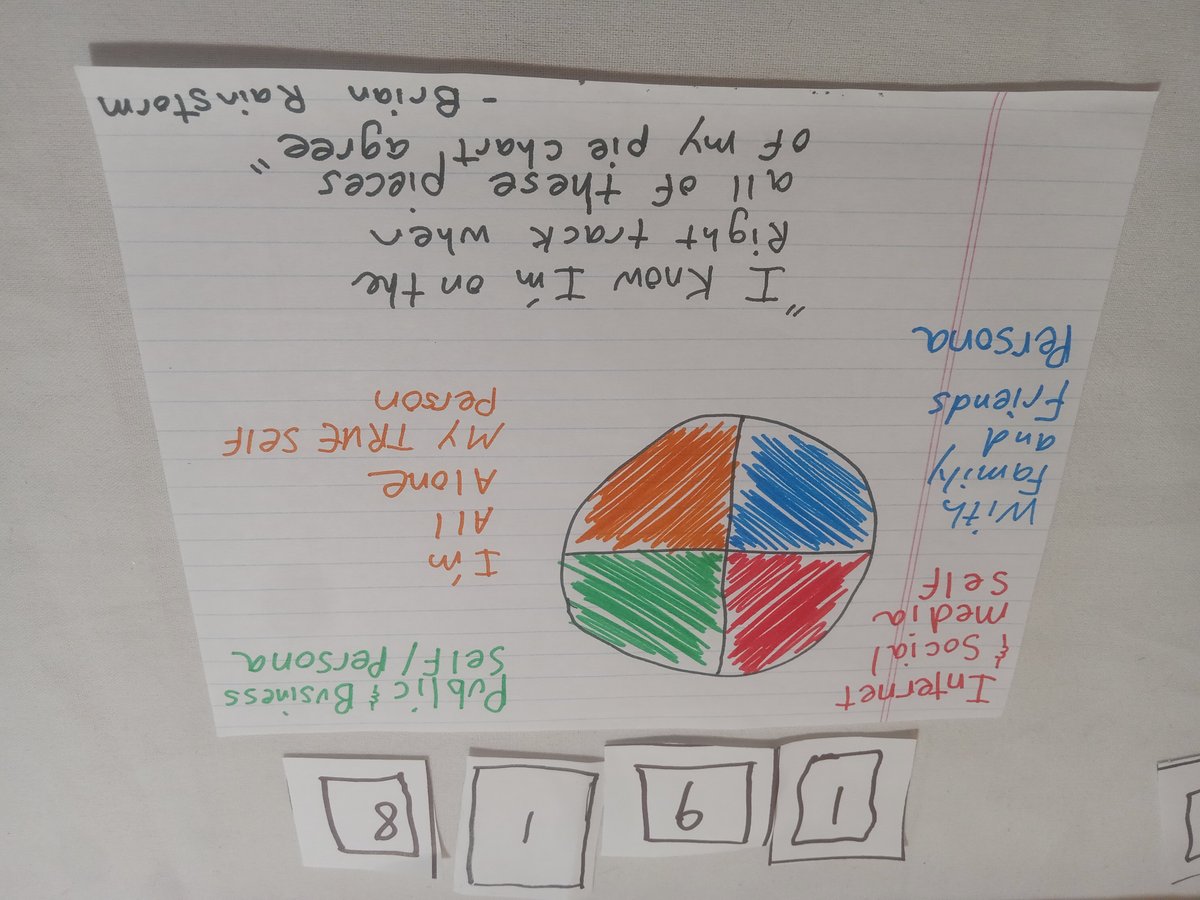 1 6 1 8
Internet
& Social
media
Self
Public & Business
Self / Persona
With
Family
and
Friends
Persona
I'm
All
Alone
MY TRUE SELF
Person
"I Know I'm on the
Right track when
all of these pieces
of my pie chart agree"
- Brian Rainstorm